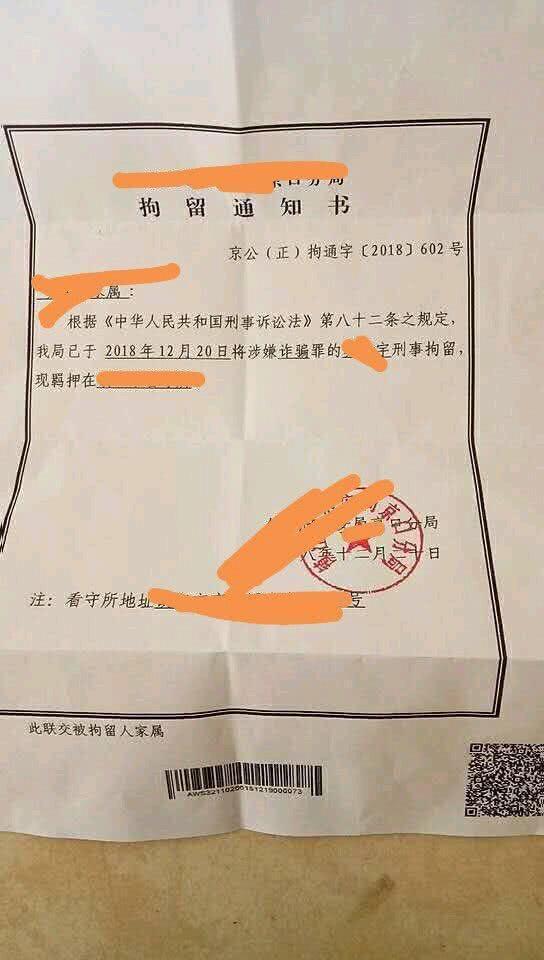 京口分局
拘留通知书
京公（正）拘通字〔2018〕602号
家属：
根据《中华人民共和国刑事诉讼法》第八十二条之规定，
我局已于 2018年12月20日将涉嫌诈骗罪的 宇刑事拘留，
现羁押在
局京口分局
八年十二月二十日
京口分局
注：看守所地址 号
此联交被拘留人家属